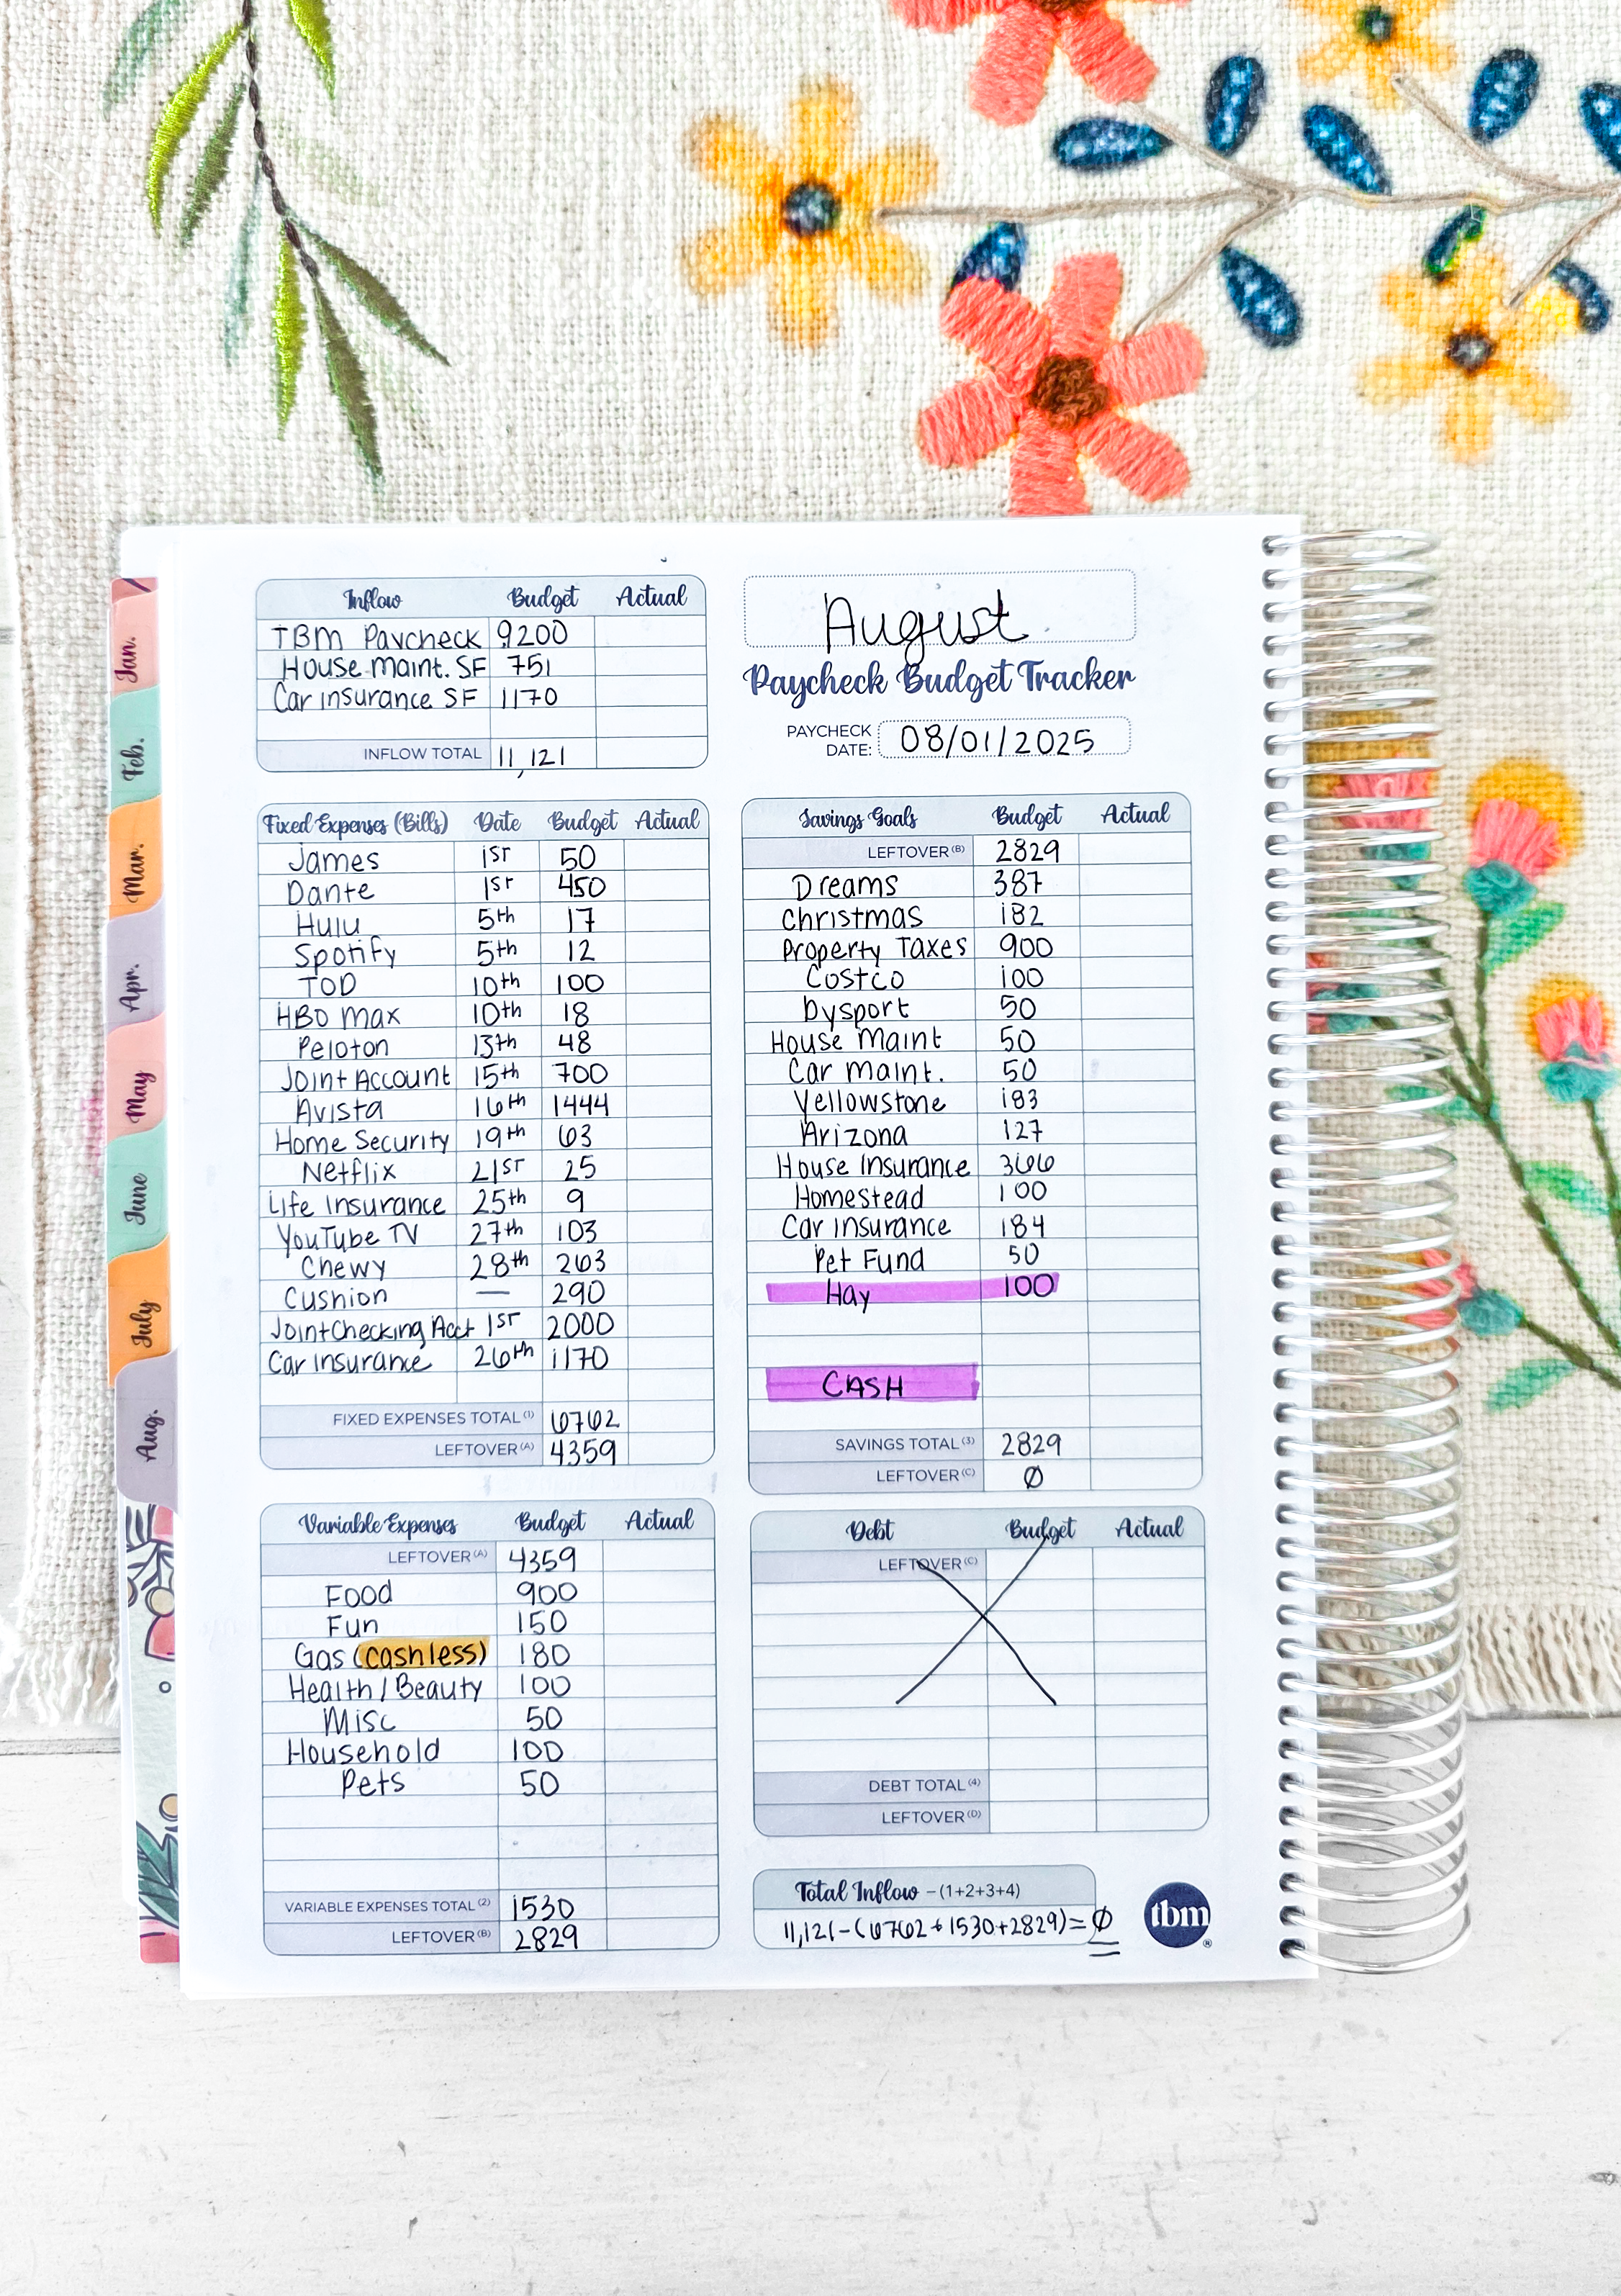 Inflow Budget Actual
TBM Paycheck 9,200
House maint. SF 751
Car insurance SF 1170
INFLOW TOTAL 11,121
August
Paycheck Budget Tracker
PAYCHECK DATE: 08/01/2025
Fixed Expenses (Bills) Date Budget Actual
James 1st 50
Dante 1st 450
Hulu 5th 17
Spotify 5th 12
TOD 10th 100
HBO max 10th 18
Peloton 13th 48
Joint Account 15th 700
Avista 16th 1444
Home Security 19th 63
Netflix 21st 25
Life Insurance 25th 9
YouTube TV 27th 103
Chewy 28th 263
Cushion — 290
Joint Checking Acct 1st 2000
Car insurance 26th 1170
FIXED EXPENSES TOTAL (1) 6762
LEFTOVER (A) 4359
Variable Expenses Budget Actual
LEFTOVER (A) 4359
Food 900
Fun 150
Gas (cashless) 180
Health/Beauty 100
Misc 50
Household 100
Pets 50
VARIABLE EXPENSES TOTAL (2) 1530
LEFTOVER (B) 2829
Savings Goals Budget Actual
LEFTOVER (B) 2829
Dreams 387
Christmas 182
Property Taxes 900
Costco 100
Dysport 50
House Maint 50
Car maint. 50
Yellowstone 183
Arizona 127
House Insurance 366
Homestead 100
Car insurance 184
Pet Fund 50
Hay 100
CASH
SAVINGS TOTAL (3) 2829
LEFTOVER (C) Ø
Debt Budget Actual
LEFTOVER (C)
DEBT TOTAL (4)
LEFTOVER (D)
Total Inflow – (1+2+3+4)
11,121-(6762+1530+2829)=Ø
tbm®
Jan.
Feb.
Mar.
Apr.
May
June
July
Aug.